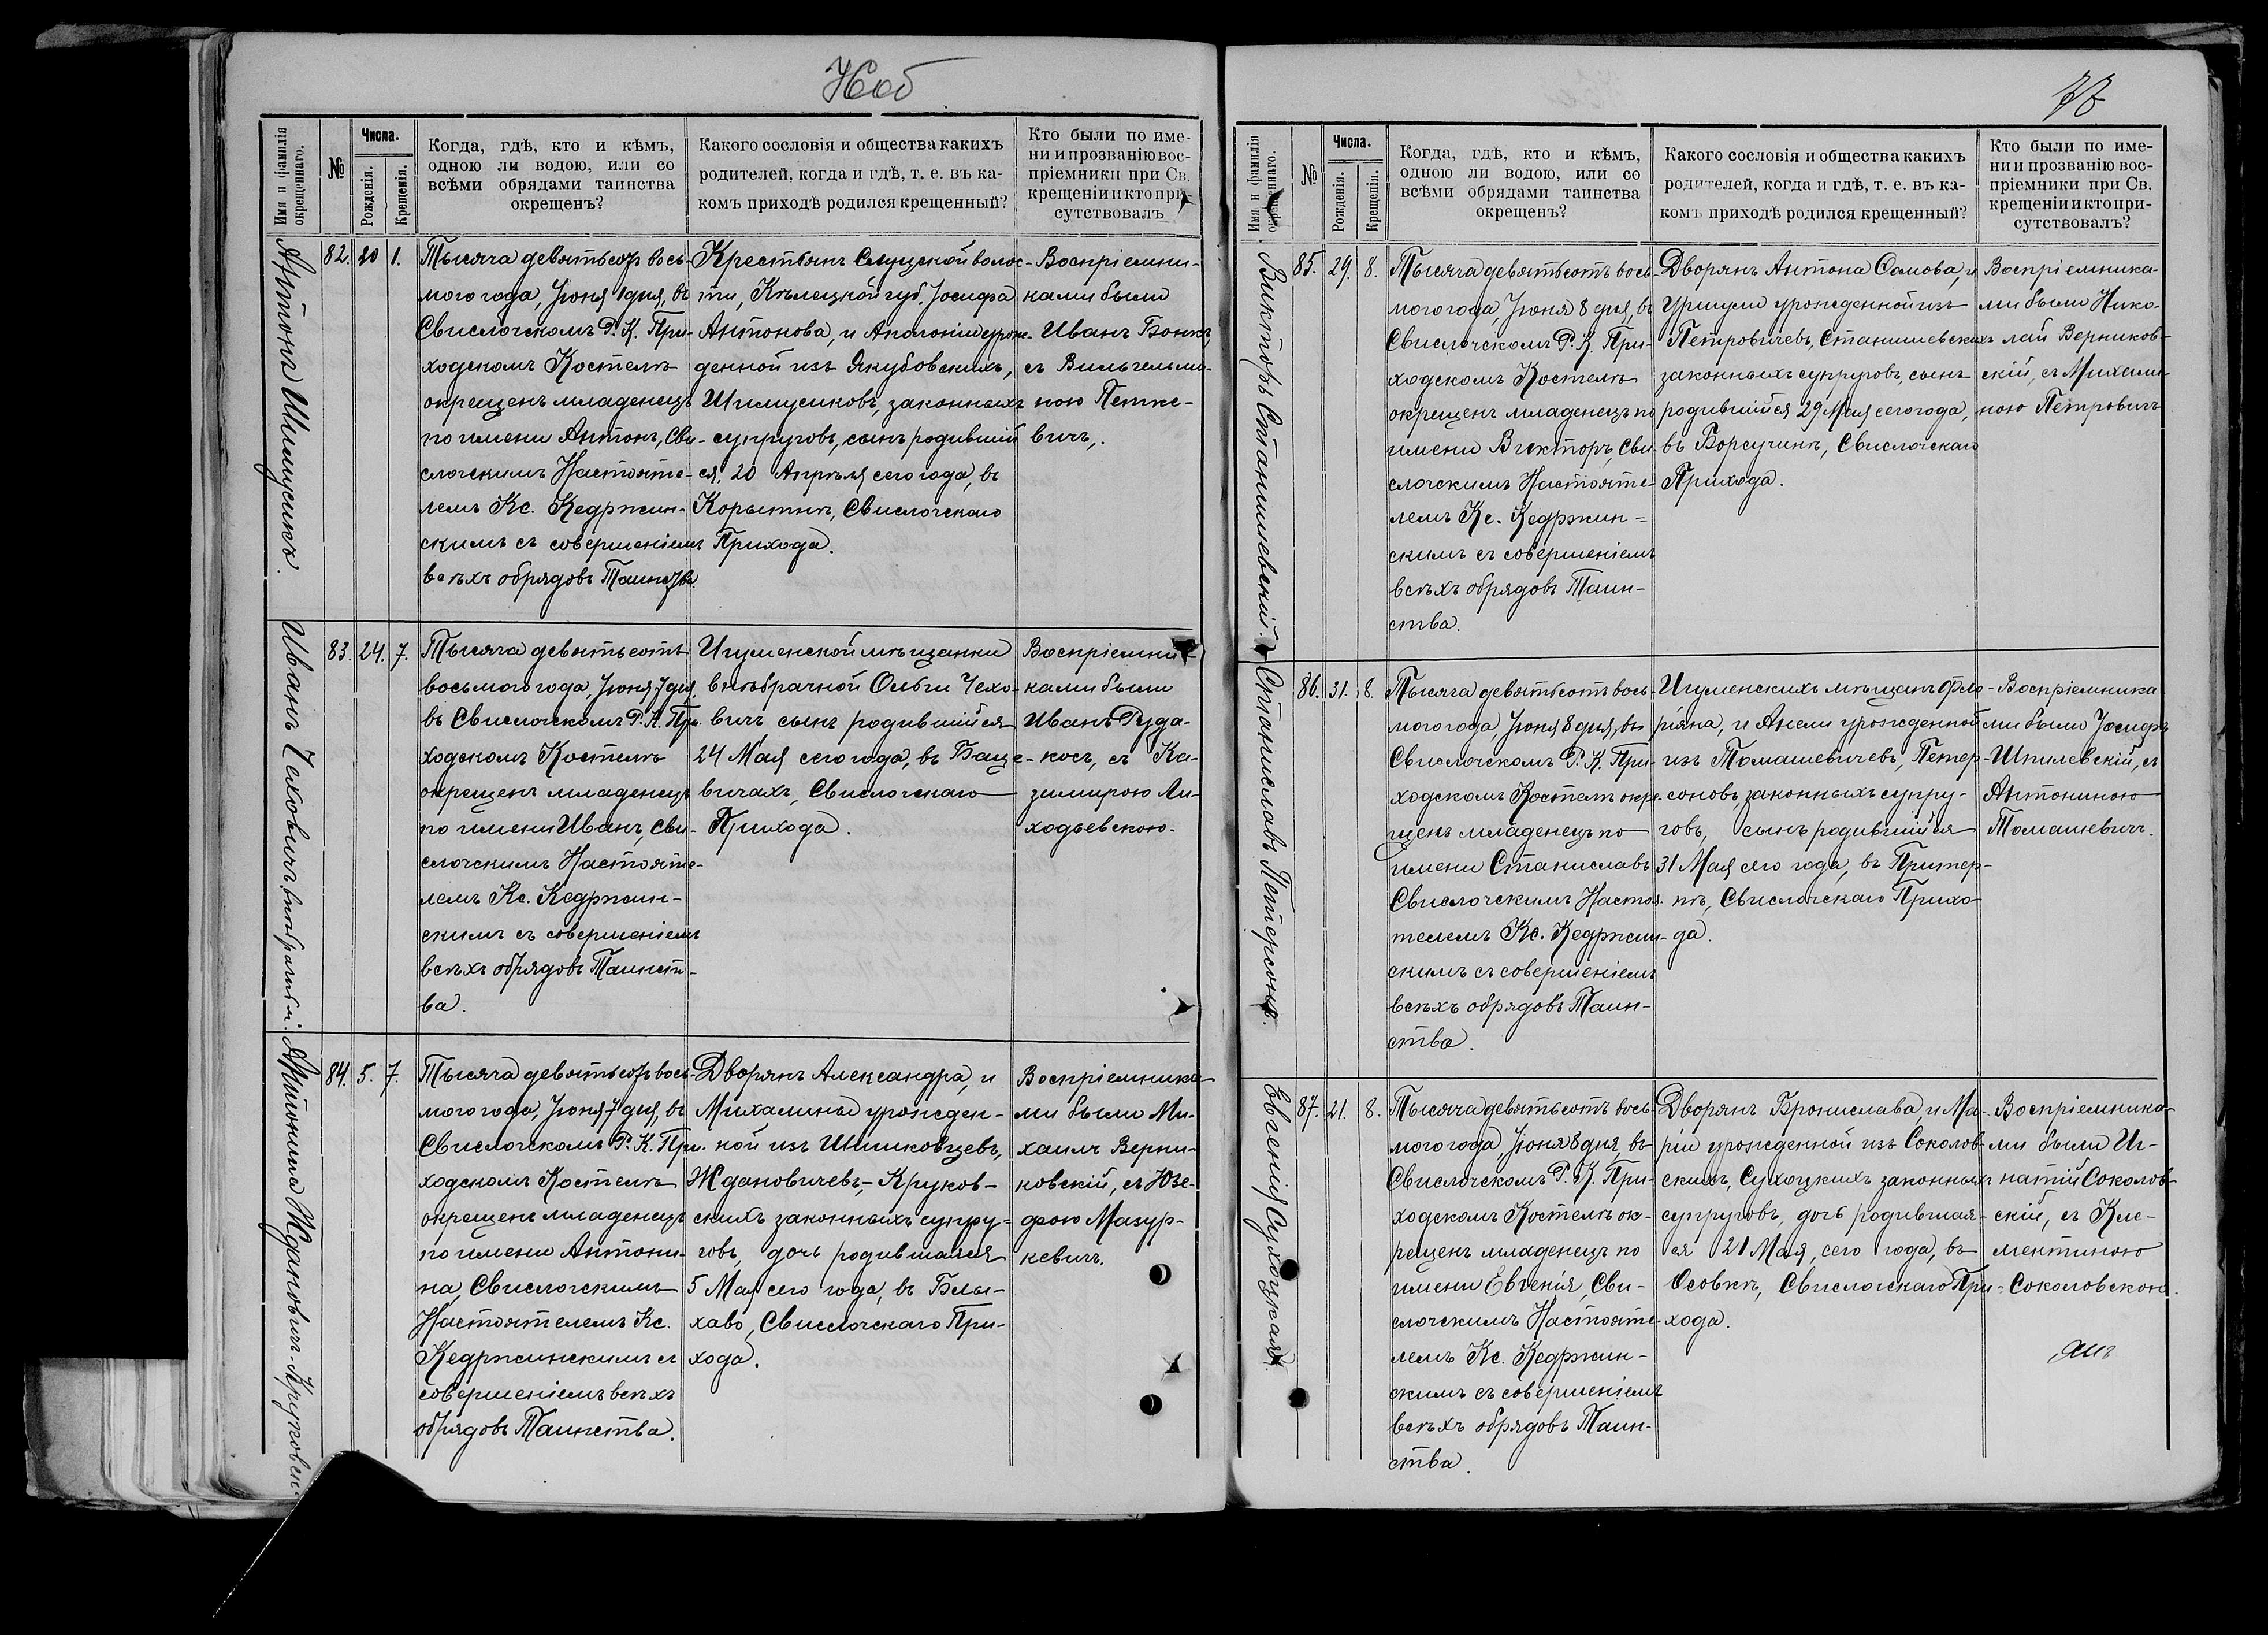 77
Имя и фамилія окрещеннаго.
№
Числа.
Рожденія.
Крещенія.
Когда, гдѣ, кто и кѣмъ,
одною ли водою, или со
всѣми обрядами таинства
окрещенъ?
Какого сословія и общества какихъ
родителей, когда и гдѣ, т. е. въ ка-
комъ приходѣ родился крещенный?
Кто были по име-
ни и прозванію вос-
пріемники при Св.
крещеніи и кто при-
сутствовалъ
Антонъ Шимусикъ.
82. 20 1.
Тысяча девятьсотъ вось-
мого года, Іюня 1 дня, въ
Свислочскомъ Р. К. При-
ходскомъ Костелѣ
окрещенъ младенецъ
по имени Антонъ, Сви-
слочскимъ Настояте-
лемъ Кс. Кедржин-
скимъ съ совершеніемъ
всѣхъ обрядовъ Таинства.
Крестьянъ Слуцской волос-
ти, Кѣлецкой губ. Іосифа
Антонова, и Аполоніи урож-
денной изъ Якубовскихъ,
Шимусиковъ, законныхъ
супруговъ, сынъ родившій
ся 20 Апрѣля сего года, въ
Корытнѣ, Свислочскаго
Прихода.
Воспріемни-
ками были
Иванъ Бонкъ,
съ Вильгельми-
ною Петке-
вичъ.
Иванъ Чеховичъ внѣбрачный.
83. 24. 7.
Тысяча девятьсотъ
восьмого года, Іюня 7 дня
въ Свислочскомъ Р. К. При-
ходскомъ Костелѣ
окрещенъ младенецъ
по имени Иванъ, Сви-
слочскимъ Настояте-
лемъ Кс. Кедржин-
скимъ съ совершеніемъ
всѣхъ обрядовъ Таинст-
ва.
Игуменской мѣщанки
внѣбрачной Ольги Чехо-
вичъ сынъ родившійся
24 Мая сего года, въ Баце-
вичахъ, Свислочскаго
Прихода.
Воспріемни-
ками были
Иванъ Руда-
кось, съ Ка-
зимирою Ли-
ходьевскою.
Антонина Ждановичъ-Круковск.
84. 5. 7.
Тысяча девятьсотъ вось-
мого года, Іюня 7 дня, въ
Свислочскомъ Р. К. При-
ходскомъ Костелѣ
окрещенъ младенецъ
по имени Антони-
на, Свислочскимъ
Настоятелемъ Кс.
Кедржинскимъ съ
совершеніемъ всѣхъ
обрядовъ Таинства.
Дворянъ Александра, и
Михалины урожден-
ной изъ Шишковцевъ,
Ждановичевъ,-Круков-
скихъ законныхъ супру-
говъ, дочь родившаяся
5 Мая сего года, въ Блы-
хаво, Свислочскаго При-
хода.
Воспріемника-
ми были Ми-
хаилъ Верни-
ковскій, съ Юзе-
фою Мазур-
кевичъ.
Имя и фамилія окрещеннаго.
№
Числа.
Рожденія.
Крещенія.
Когда, гдѣ, кто и кѣмъ,
одною ли водою, или со
всѣми обрядами таинства
окрещенъ?
Какого сословія и общества какихъ
родителей, когда и гдѣ, т. е. въ ка-
комъ приходѣ родился крещенный?
Кто были по име-
ни и прозванію вос-
пріемники при Св.
крещеніи и кто при-
сутствовалъ?
Викторъ Станишевскій.
85. 29. 8.
Тысяча девятьсотъ вось-
мого года, Іюня 8 дня, въ
Свислочскомъ Р. К. При-
ходскомъ Костелѣ
окрещенъ младенецъ по
имени Викторъ, Сви-
слочскимъ Настояте-
лемъ Кс. Кедржин=
скимъ съ совершеніемъ
всѣхъ обрядовъ Таин-
ства.
Дворянъ Антона Самова, и
Уршули урожденной изъ
Петровичевъ, Станишевскихъ
законныхъ супруговъ, сынъ
родившійся 29 Мая сего года,
въ Борсучинѣ, Свислочскаго
Прихода.
Воспріемника-
ми были Нико-
лай Верников-
скій, съ Михали-
ною Петровичъ
Станиславъ Петерсонъ.
86. 31. 8.
Тысяча девятьсотъ вось-
мого года Іюня 8 дня, въ
Свислочскомъ Р. К. При-
ходскомъ Костелѣ окре-
щенъ младенецъ по
имени Станиславъ
Свислочскимъ Настоя-
телемъ Кс. Кедржин-
скимъ съ совершеніемъ
всѣхъ обрядовъ Таин-
ства.
Игуменскихъ мѣщанъ Фло-
ріяна, и Анели урожденной
изъ Томашевичевъ, Петер-
соновъ законныхъ супру-
говъ, сынъ родившійся
31 Мая сего года, въ Притер-
пѣ, Свислочскаго Прихо-
да.
Воспріемника
ми были Іосифъ
Шпилевскій, съ
Антониною
Томашевичъ.
Евгенія Сухоцкая.
87. 21. 8.
Тысяча девятьсотъ вось-
мого года, Іюня 8 дня, въ
Свислочскомъ Р. К. При-
ходскомъ Костелѣ ок-
рещенъ младенецъ по
имени Евгенія, Сви-
слочскимъ Настояте-
лемъ Кс. Кедржин-
скимъ съ совершеніемъ
всѣхъ обрядовъ Таин-
ства.
Дворянъ Бронислава, и Ма-
ріи урожденной изъ Соколов-
скихъ, Сухоцкихъ законныхъ
супруговъ, дочь родившая-
ся 21 Мая, сего года, въ
Осовкѣ, Свислочскаго При-
хода.
Воспріемника-
ми были Иг-
натій Соколов-
скій, съ Кле-
ментиною
Соколовскою.